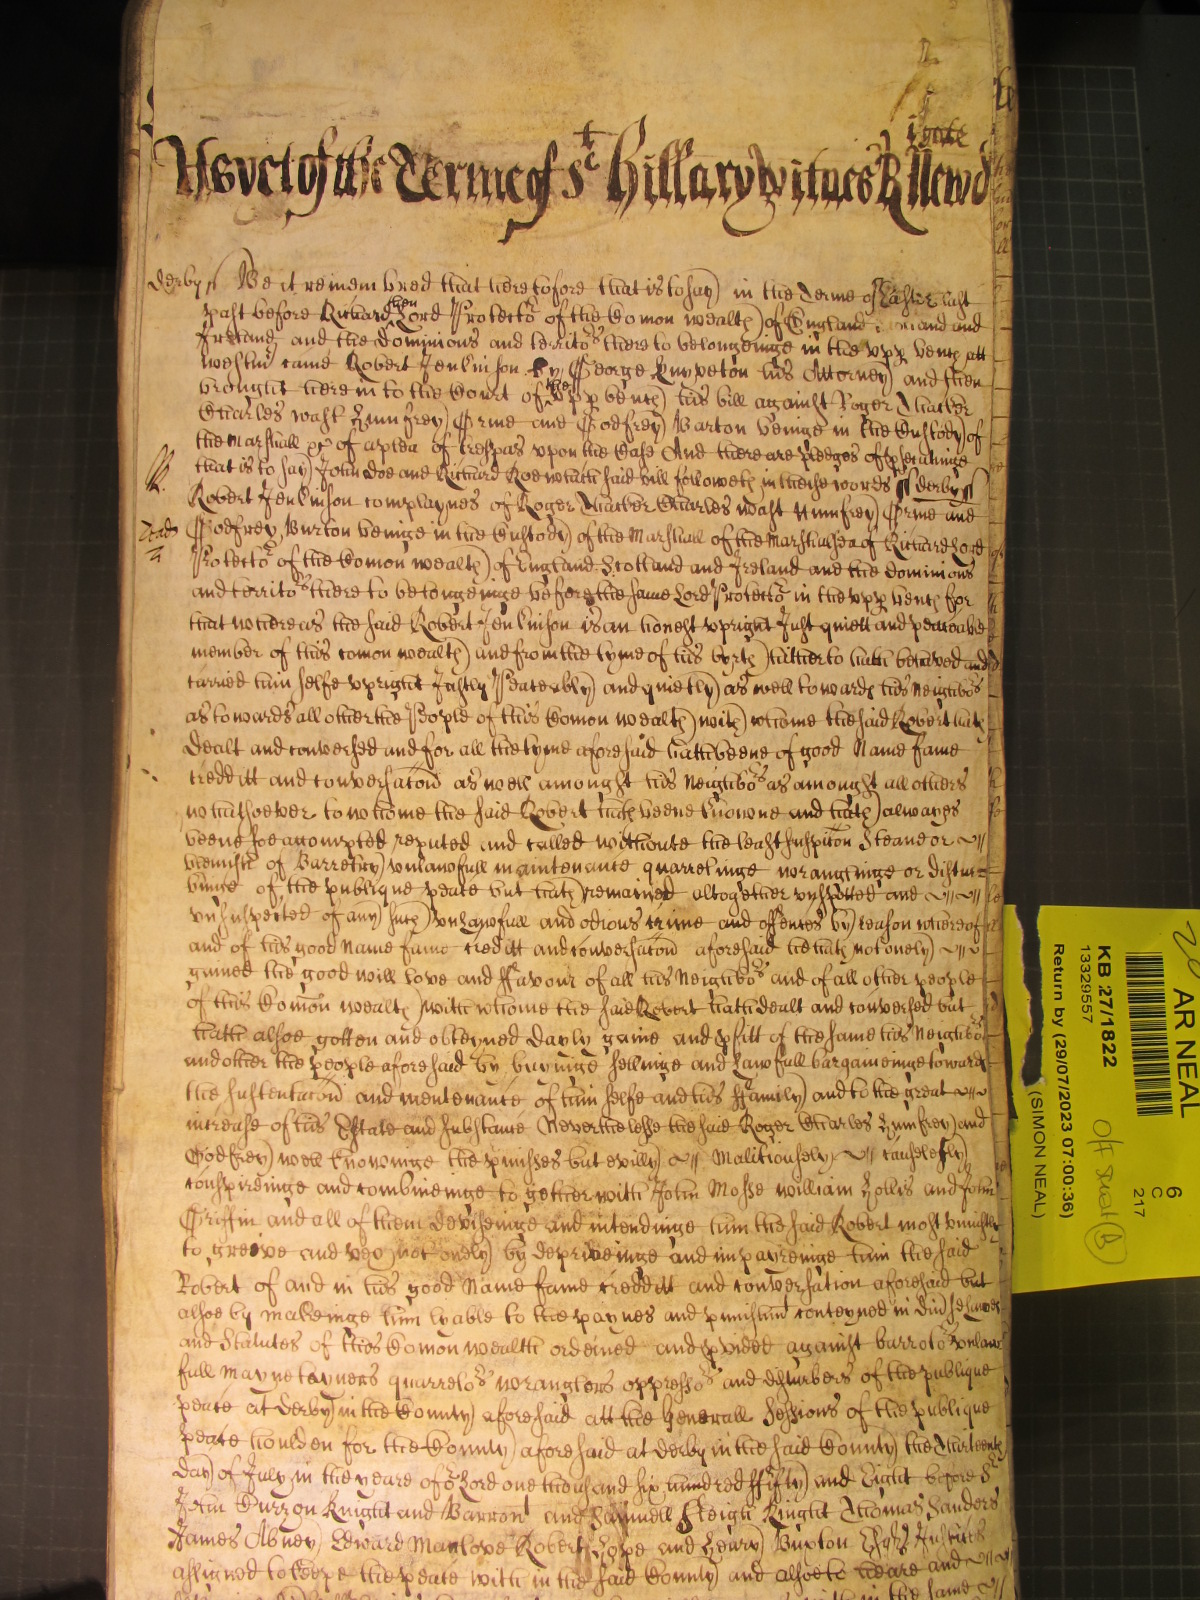 As yet of the Terme of St Hillary Witnes R Newdigate
Derby ss Be it remembred that heretofore that is to say in the Terme of Easter last
past before Richard then Lord Protector of the Comon wealth of England and
Ireland and the dominions and territors there to belongeinge in the upp bench att
westm came Robert Jenkinson by George Knyveton his Attorney and then
brought here in to the Court of the upp bench his bill against Roger
Charles wast Humfrey Orme and Godfrey Burton beinge in the Custody of
the Marshall &c of a plea of trespas upon the Case And there are pledges of psecutinge
that is to say John Doe and Richard Roe which said bill followeth in these words ss Derby ss
Robert Jenkinson complaynes of Roger Charles wast Humfrey Orme and
Godfrey Burton beinge in the Custody of the Marshall of the Marshalsea of Richard Lord
Protector of the Comon wealth of England Scotland and Ireland and the dominions
and territors there to belongeinge before the same Lord Protector in the upp bench for
that whereas the said Robert Jenkinson is an honest upright Just quiett and peaceable
member of this comon wealth and from the tyme of his byrth hitherto hath behaved and
carried him selfe upright Justly Peaceably and quietly as well towards his Neighbos
as towards all other the People of this Comon wealth with whome the said Robert hath
dealt and conversed and for all the tyme aforesaid hath beene of good Name fame
credditt and conversacon as well amongst his Neighbors as amongst all others
whatsoever to whome the said Robert hath beene knowne and hath alwayes
beene soe accompted reputed and called without the least suspicon Sleandor or
blemish of Barretry unlawfull maintenance quarrelinge wranglinge or distur=
bance of the publique peace but hath remained altogether unspotted and
unsuspected of any such unlawfull and odious crime and offences by reason whereof
and of his good Name fame creditt and conversacon aforesaid he hath not onely
gained the good will love and ffavour of all his Neighbors and of all other people
of this Comon wealth with whome the said Robert hath dealt and conversed but
hath alsoe gotten and obteyned dayly gaine and pfitt of the same his Neighbors
and other the people aforesaid by buyinge sellinge and lawfull bargaineinge towards
the sustentacon and mentenance of him selfe and his ffamily and to the great
increase of his Estate and substance Neverthelesse the said Roger Charles Humfrey and
Godfrey well knowinge the pmisses but evilly Malitiously causelesly
conspireinge and combineinge to gether with John Mosse William Hollis and John
Griffin and all of them deviseinge and intendinge him the said Robert most uniustly
to greive and vex not onely by depriveinge and impayreinge him the said
Robert of and in his good Name fame credditt and conversation aforesaid but
alsoe by makeinge him lyable to the paynes and punishmt conteyned in divse lawes
and Statutes of this Comon wealth ordeined and pvided against barrators unlaw
full mayneteyners quarrelors wranglers oppressors and disturbers of the publique
peace at Derby in the County aforesaid att the Generall Sessions of the publique
peace houlden for the County aforesaid at Derby in the said County the Thirteenth
day of July in the yeare of or Lord one thousand six hundred ffifty and Eight before Sr
John Curzon Knight and Barront and Samuell Sleigh Knight Thomas Sanders
James Abney Edward Manlove Robert Hope and Henry Buxton Esqrs Justices
assigned to keepe the peace with in the said County and alsoe to heare and
in the same
AR NEAL
KB 27/1822
13329557
Return by (29/07/2023 07:00:36)
(SIMON NEAL)
6
C
217